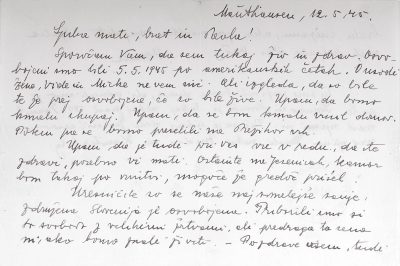 Mauthausen, 12. 5. 45.
Ljuba mati, brat in Pavla!
Sporočam Vam, da sem tukaj živ in zdrav. Osvo-
bojeni smo bili 5. 5. 1945 po amerikanskih četah. O usodi
žene, Vide in Mirke ne vem nič. Ali izgleda, da so bile
te že prej osvobojene, če so bile žive. Upam, da bomo
kmalu skupaj. Upam, da se bom kmalu vrnil domov.
Potem pa se bomo preselili na Prežihov vrh.
Upam, da je tudi pri vas vse v redu, da ste
zdravi, posebno vi mati. Ostanite na Jesenicah, kamor
bom takoj po vrnitvi, mogoče že gredoč prišel.
Uresničile so se naše najsmelejše sanje,
združena Slovenija je osvobojena. Priborili smo si
to svobodo z velikimi žrtvami, ali predraga ta cena
ni, ako bomo znali živeti. – Pozdrave vsem, tudi